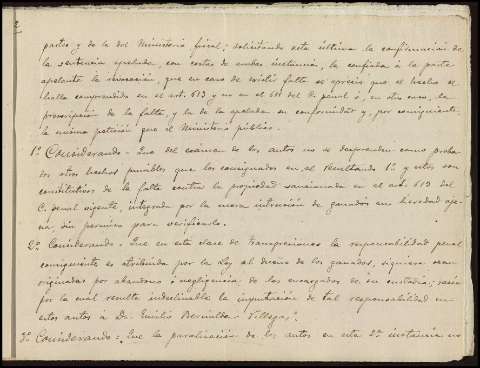 2
partes y de la del Ministerio fiscal; solicitando esta última la confirmación de
la sentencia apelada, con costas de ambas instancias, la confiada a la parte
apelante la revocación, que en caso de existir falta es preciso que el hecho se
halla comprendido en el art. 613 y no en el 611 del C. penal ó, en otro caso, la
prescripción de la falta, y la de la apelada su conformidad y, por consiguiente,
la misma petición que el Ministerio público.
1º Considerando- Que del examen de los autos no se desprenden como proba
dos otros hechos punibles que los consignados en el Resultando 1º y estos son
constitutivos de la falta contra la propiedad sancionada en el art. 613 del
C. penal vigente, integrada por la mera intrusión de ganados en heredad aje
na, sin permiso para verificarlo.
2º Considerando- Que en esta clase de transgresiones la responsabilidad penal
consiguiente es atribuida por la Ley al dueño de los ganados, siquiera sean
originadas por abandono ó negligencia de los encargados de su custodia; razón
por la cual resulta indeclinable la imputación de tal responsabilidad en
estos autos á Dn. Emilio Villegas.
3º Considerando: Que la paralización de los autos en esta 2ª instancia no